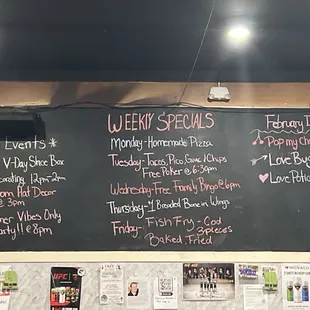 Events
V-Day Shoe Box
Decorating 12pm-2pm
Hat Decor
@ 3pm
Vibes Only
Party!! @ 8pm
WEEKLY SPECIALS
Monday-Homemade Pizza
Tuesday-Tacos, Pico, Guac & Chips
Free Poker @ 6:30pm
Wednesday-Free Family Bingo @ 6pm
Thursday-1 Breaded Bone in Wings
Friday- Fish Fry - Cod
3 pieces
Baked Fried
February
Pop my Ch
Love Bu
Love Poti
UFC